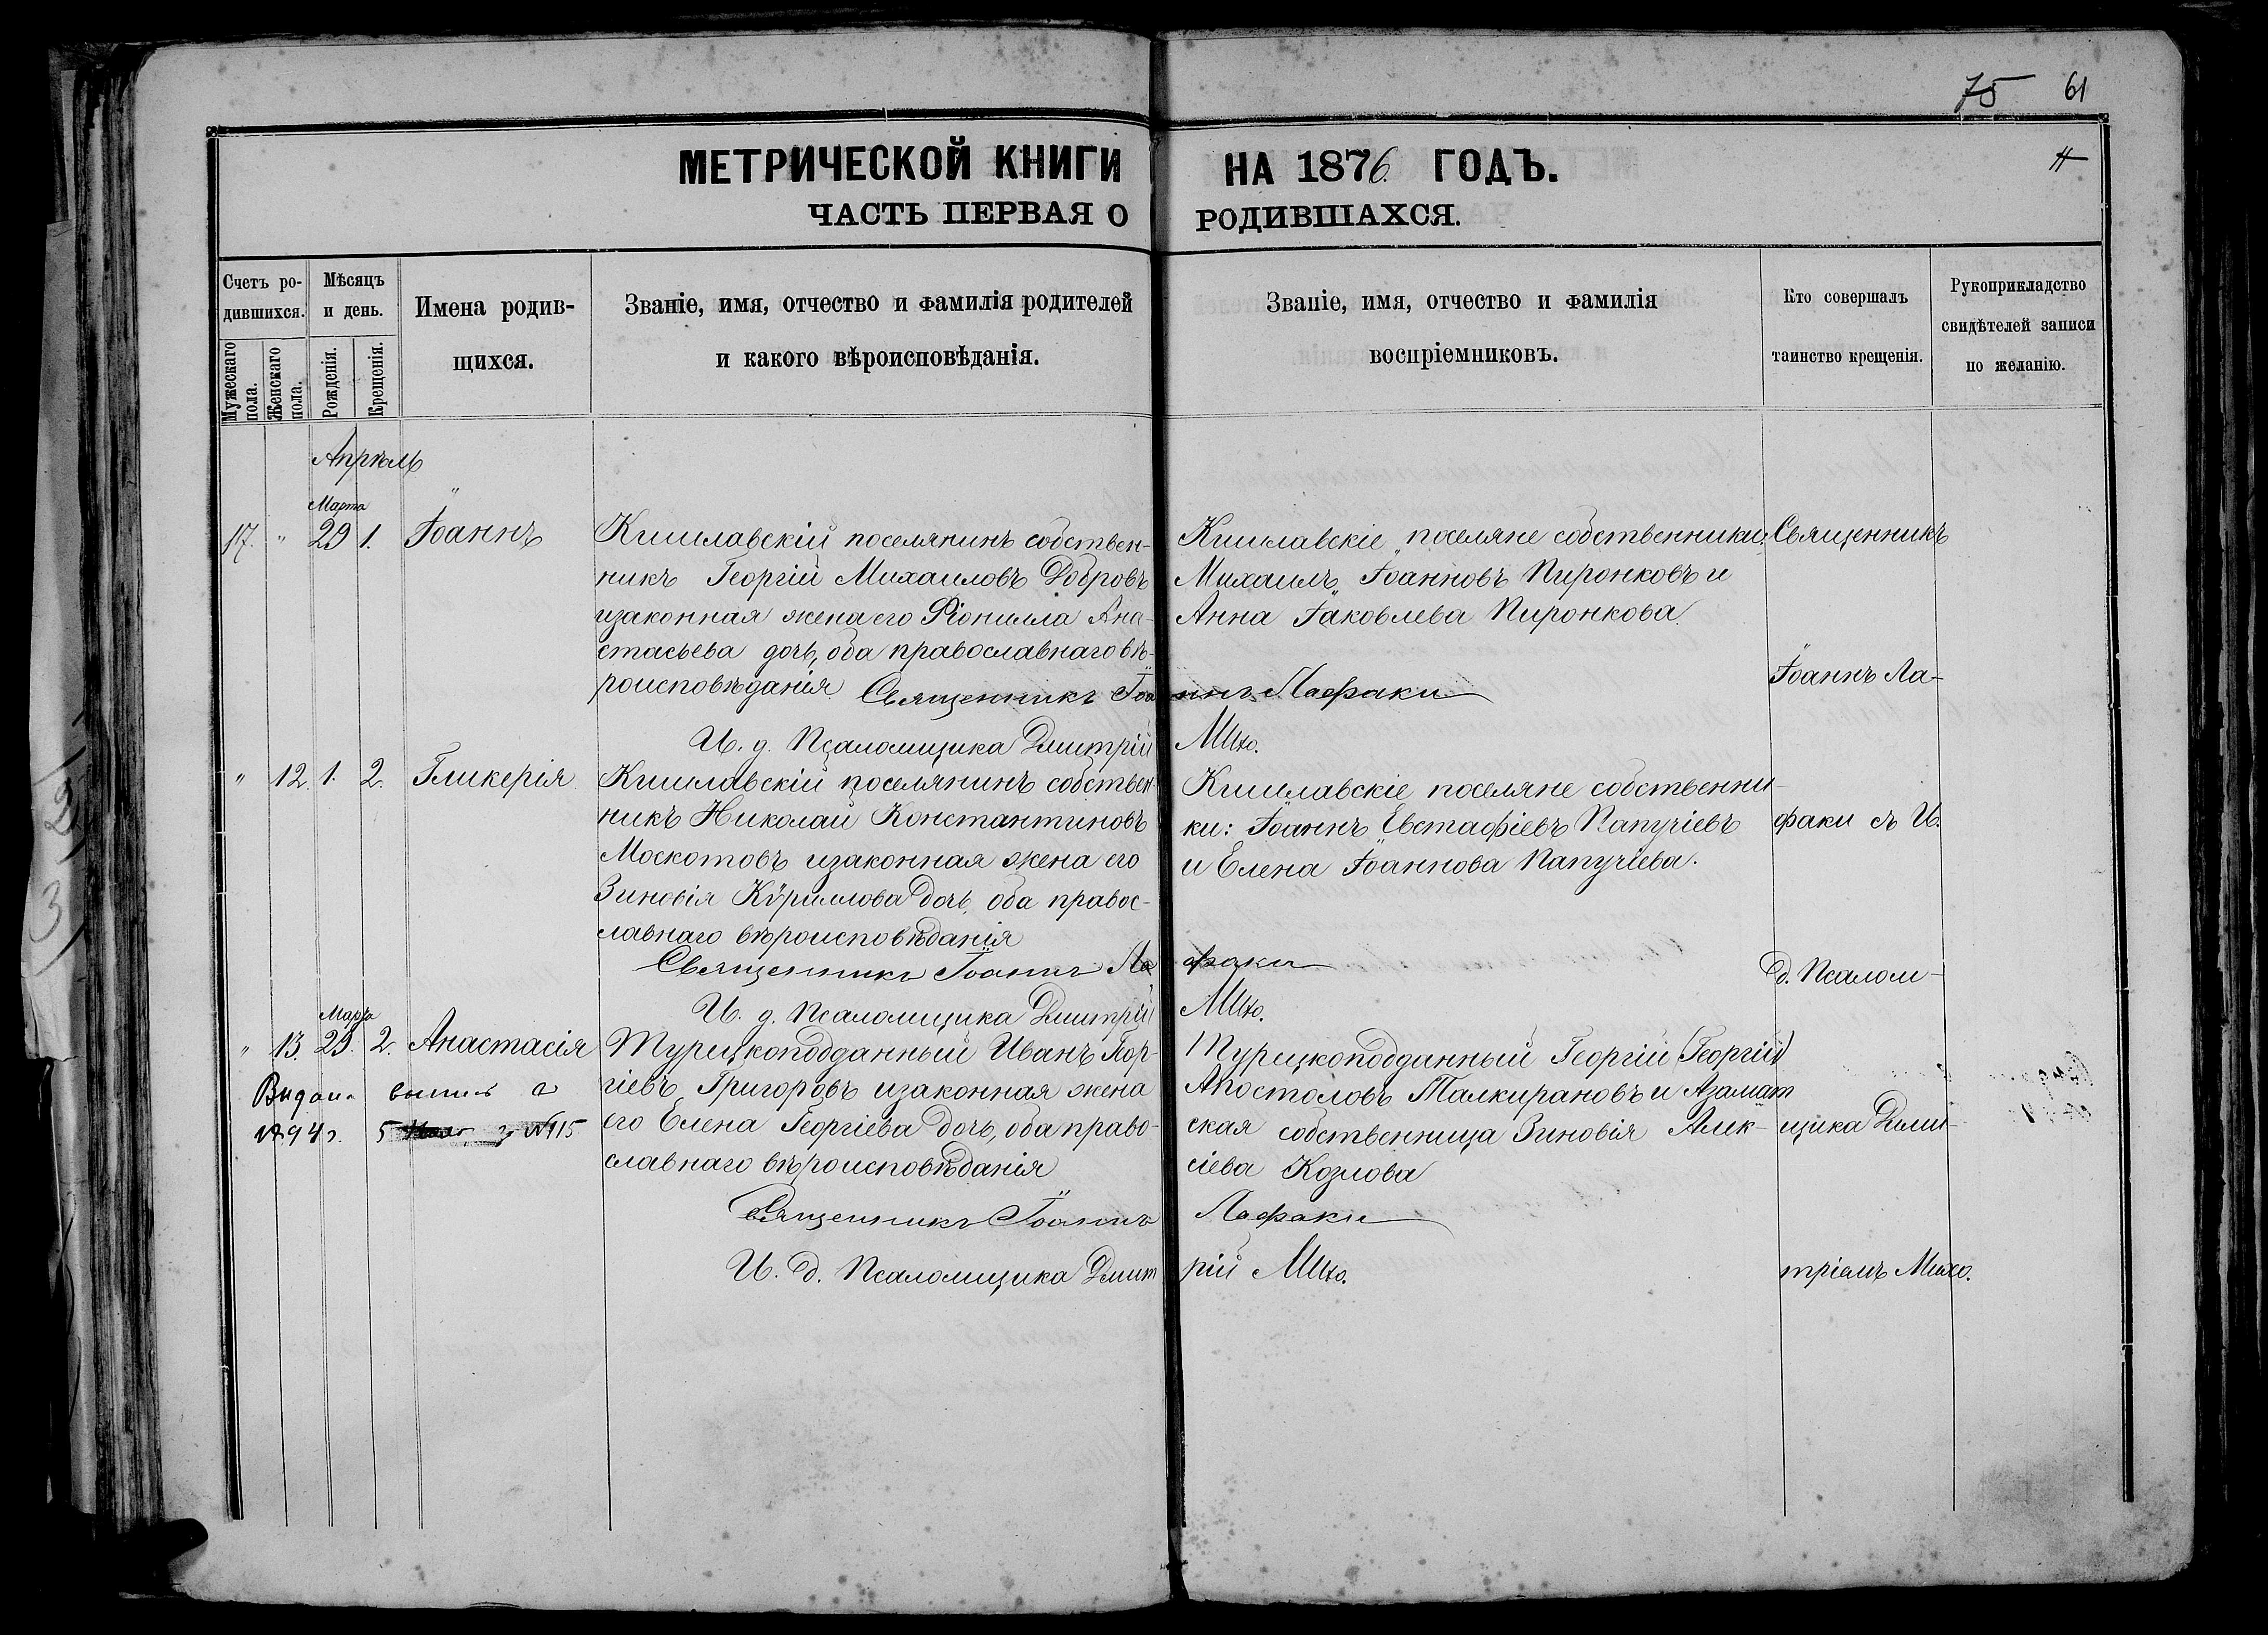 75 61
МЕТРИЧЕСКОЙ КНИГИ НА 1876 ГОДЪ.
ЧАСТЬ ПЕРВАЯ О РОДИВШАХСЯ.
Счетъ родившихся.
Мужескаго пола.
Женскаго пола.
Мѣсяцъ и день.
Рожденія.
Крещенія.
Имена родив-
щихся.
Званіе, имя, отчество и фамилія родителей
и какого вѣроисповѣданія.
Званіе, имя, отчество и фамилія
воспріемниковъ.
Кто совершалъ
таинство крещенія.
Рукоприкладство
свидѣтелей записи
по желанію.
Апрѣль
Марта
17. " 29 1. Іоаннъ
Кишлавскій поселянинъ собствен-
никъ Георгій Михаиловъ Добровъ
и законная жена его Ѳіонилла Ана-
стасьева дочь, оба православнаго вѣ-
роисповѣданія
Кишлавскіе поселяне собственники
Михаилъ Іоанновъ Пиронковъ и
Анна Іаковлева Пиронкова
Священникъ Іоаннъ Лафаки
И. д. Псаломщика Дмитрій
" 12. 1. 2. Гликерія
Кишлавскій поселянинъ собствен-
никъ Николай Константиновъ
Москотовъ и законная жена его
Зиновія Кѵриллова дочь, оба правос-
лавнаго вѣроисповѣданія
Кишлавскіе поселяне собственни-
ки: Іоаннъ Евстафіевъ Папучіевъ
и Елена Іоаннова Папучіева.
Священникъ Іоаннъ Лафаки
И. д. Псаломщика Дмитрій
Марта
" 13. 29. 2. Анастасія
Турецкоподданный Иванъ Геор-
гіевъ Григоровъ и законная жена
его Елена Георгіева дочь, оба право-
славнаго вѣроисповѣданія
Турецкоподданный Георгій (Георгій)
Апостоловъ Талкирановъ и Азамат
ская собственница Зиновія Алек-
сіева Козлова
1894 г. 5 № 115
Священникъ Іоаннъ Лафаки
И. д. Псаломщика Дмитрій
Священникъ
Іоаннъ Ла-
факи съ И.
д. Псалом-
щика Дми-
тріемъ